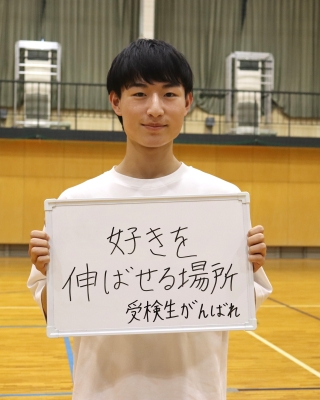 好きを
伸ばせる場所
受検生がんばれ